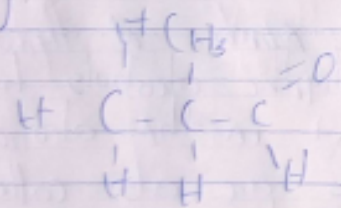 H CH₃
H C - C - C = O
H H H